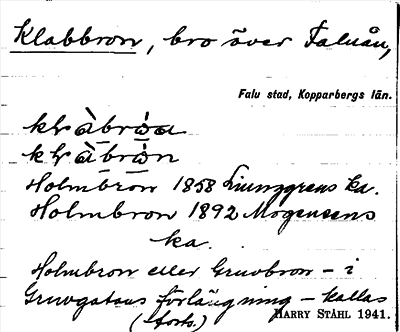 Klabbron, bro över Faluån,
Falu stad, Kopparbergs län.
Holmbron 1858 Ljunggrens ka.
Holmbron 1892 Mogensens
ka.
Holmbron eller Gruvbron – i
Gruvgatans förlängning – kallas
(forts.)
HARRY STÅHL 1941.